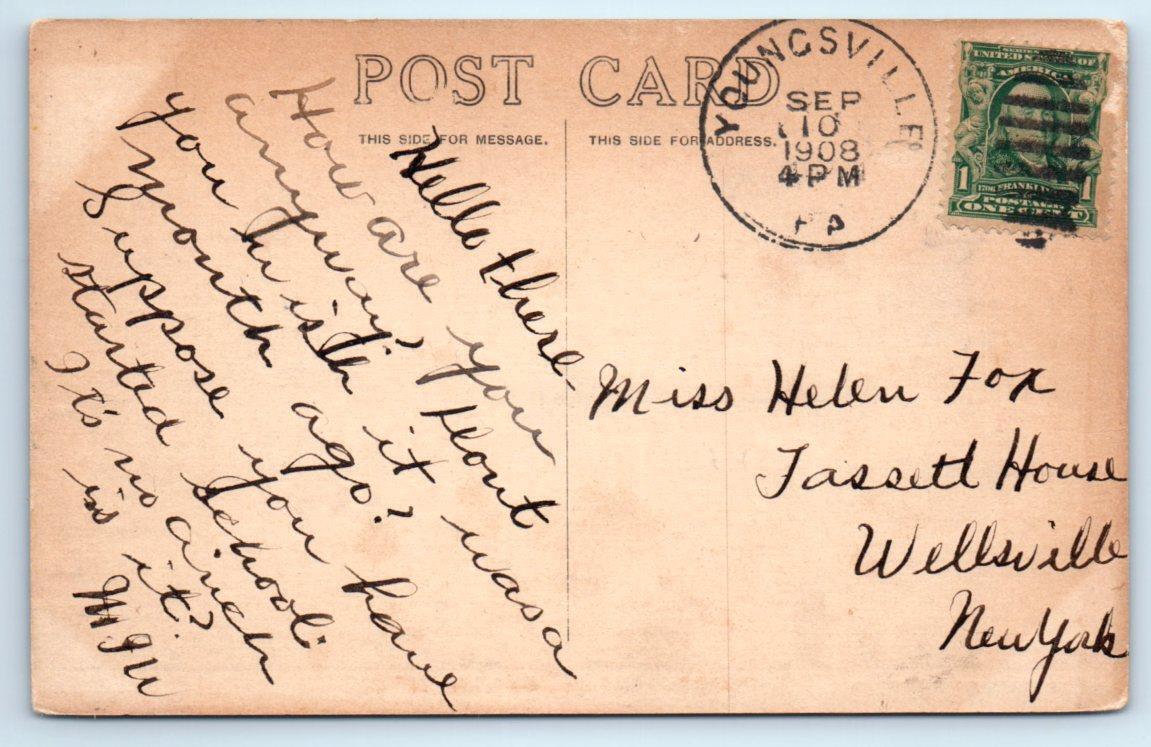 POST CARD
THIS SIDE FOR MESSAGE.
THIS SIDE FOR ADDRESS.
YOUNGSVILLE
SEP
10
1908
4 PM
PA
SERIES
UNITED STATES OF
AMERICA
1 FRANKLIN 1
POSTAGE
ONE CENT
Hello there.
How are you
anyway? Don't
you wish it was a
month ago?
Suppose you have
started school.
It's no cinch
is it?
Miss Helen Fox
Fassett House
Wellsville
New York